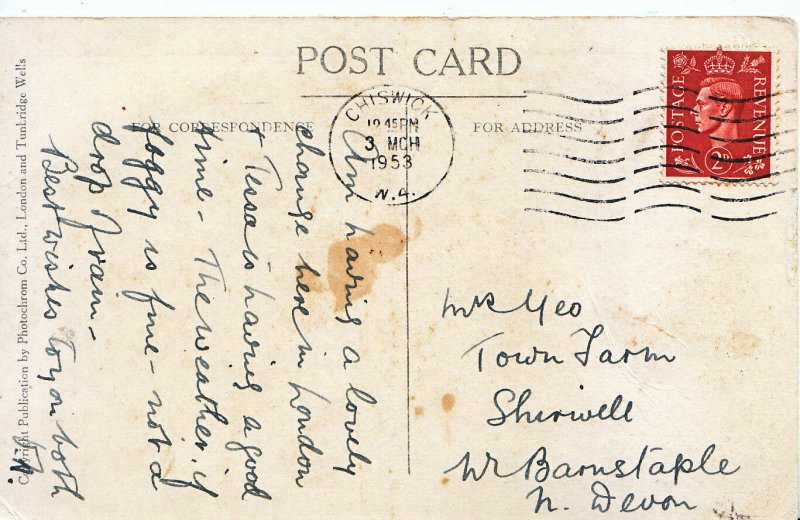 POST CARD
FOR CORRESPONDENCE
FOR ADDRESS
CHISWICK
12 45 PM
3 MCH
1953
W.4.
POSTAGE
REVENUE
2½D
Am having a lovely
change here in London
+ Tessa is having a good
time - The weather if
foggy is fine - not a
drop of rain -
Best wishes to you both
Mr Yeo
Town Farm
Shirwell
Nr Barnstaple
N. Devon
Copyright Publication by Photochrom Co. Ltd., London and Tunbridge Wells